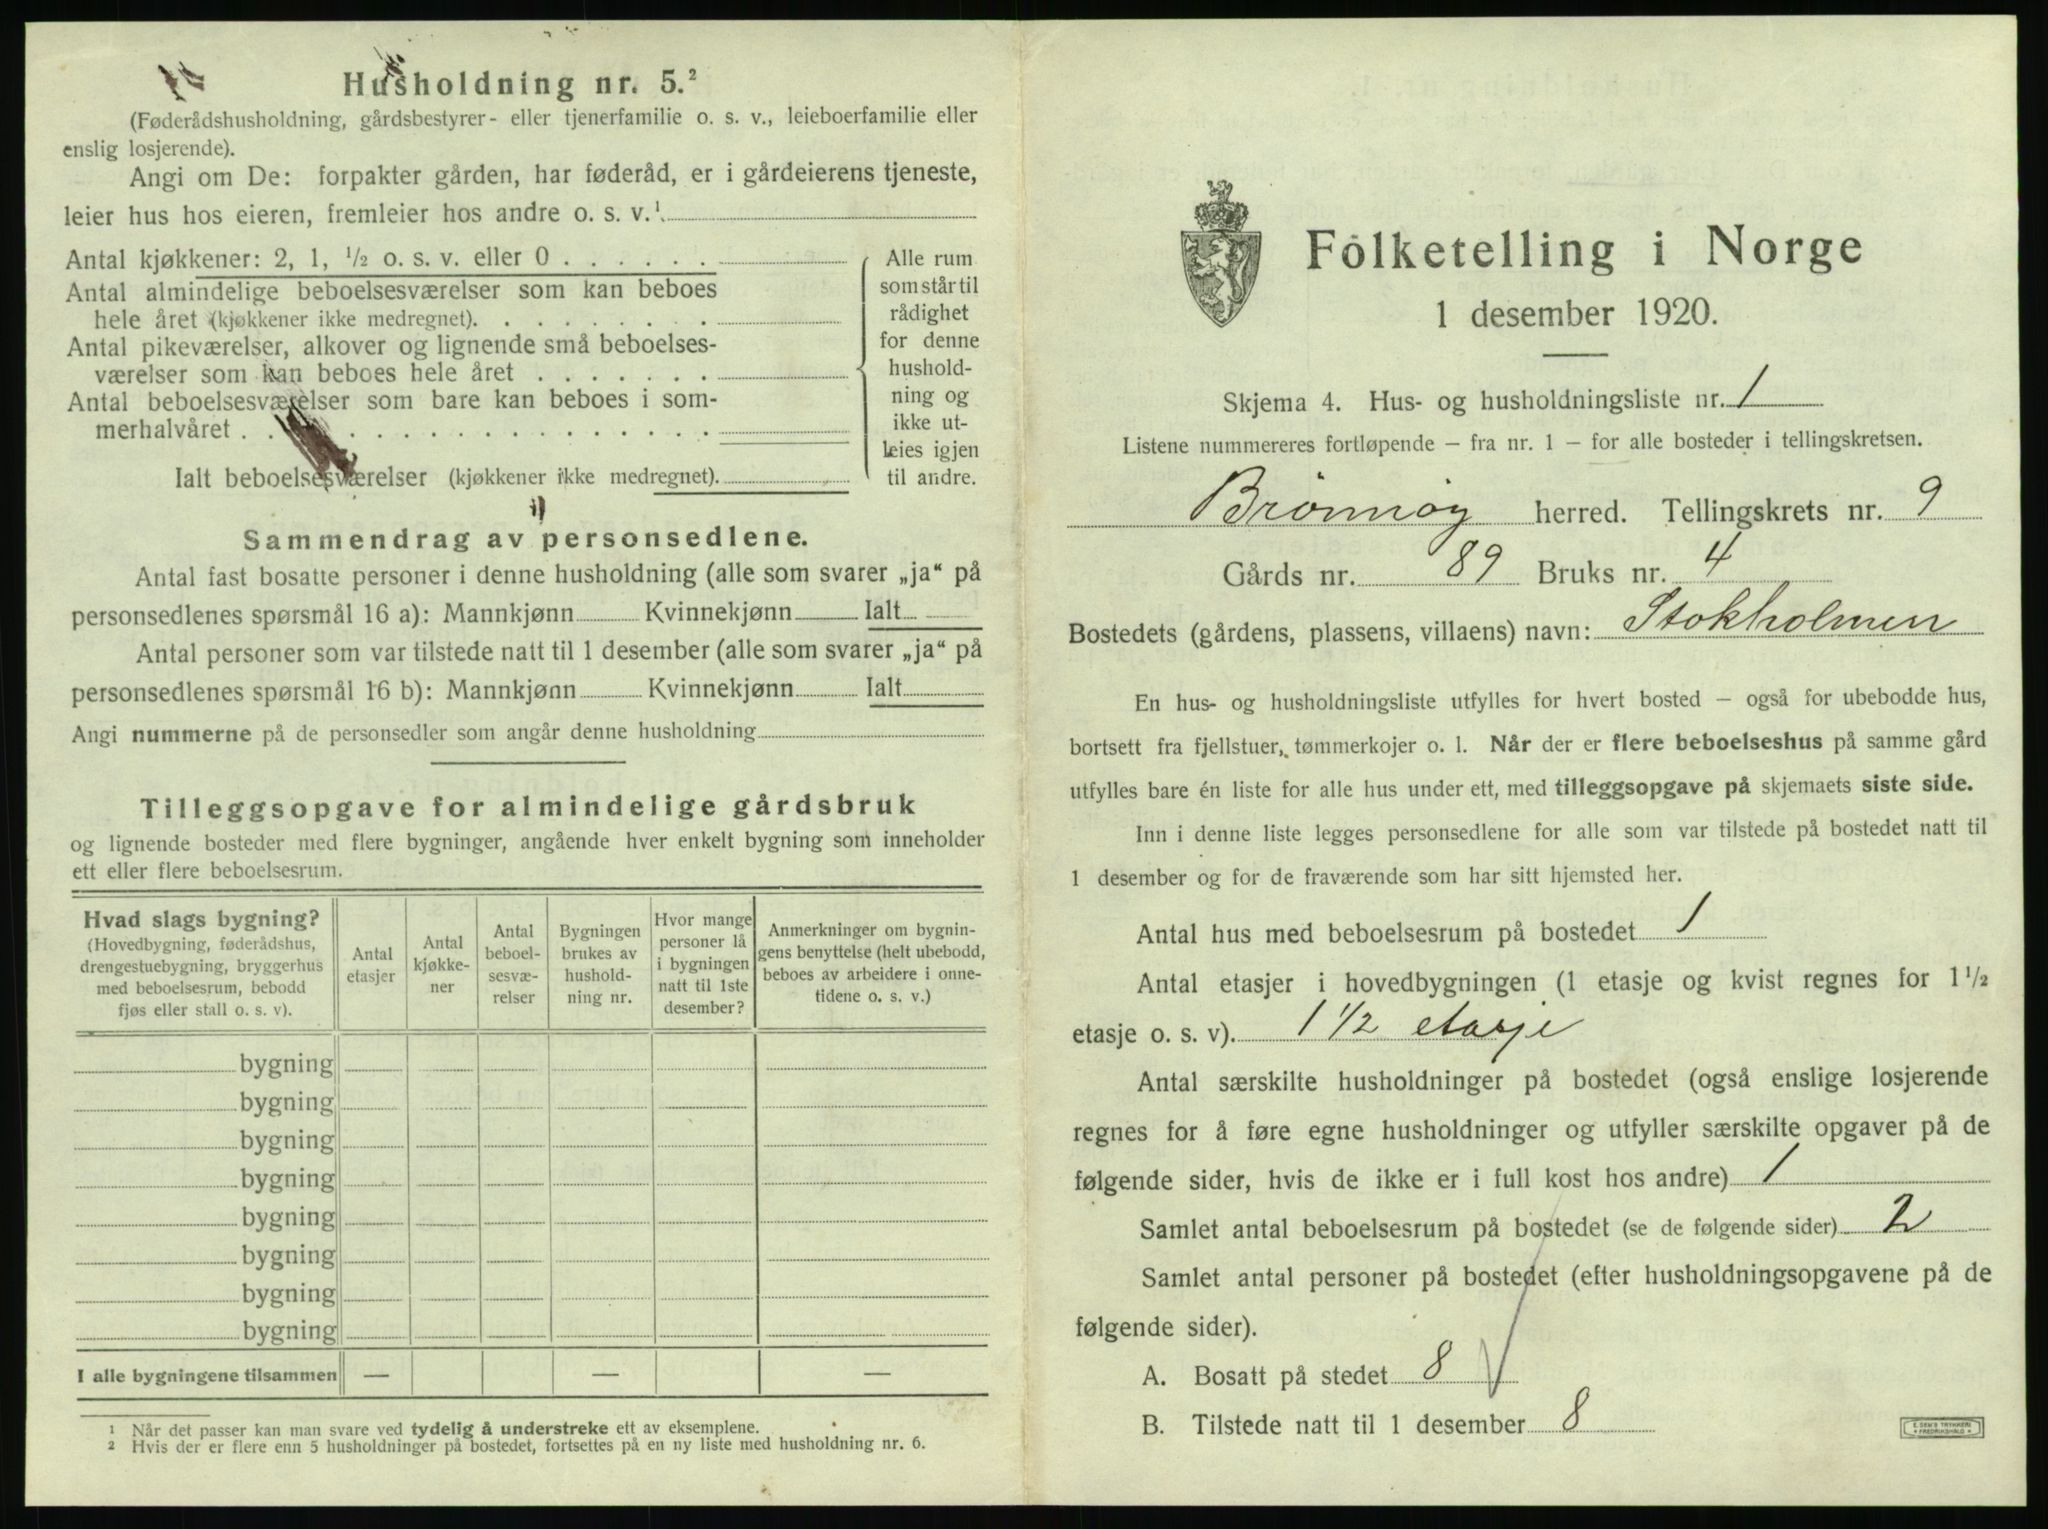 Husholdning nr. 5.²
(Føderådshusholdning, gårdsbestyrer- eller tjenerfamilie o. s. v., leieboerfamilie eller
enslig losjerende).
Angi om De: forpakter gården, har føderåd, er i gårdeierens tjeneste,
leier hus hos eieren, fremleier hos andre o. s. v.¹
Antal kjøkkener: 2, 1, ½ o. s. v. eller 0 . . . . . .
Antal almindelige beboelsesværelser som kan beboes
hele året (kjøkkener ikke medregnet). . . . . . . .
Antal pikeværelser, alkover og lignende små beboelses-
værelser som kan beboes hele året . . . . . . .
Antal beboelsesværelser som bare kan beboes i som-
merhalvåret . . . . . . . . . . . . . . . . .
Ialt beboelsesværelser (kjøkkener ikke medregnet).
Alle rum
som står til
rådighet
for denne
hushold-
ning og
ikke ut-
leies igjen
til andre.
Sammendrag av personsedlene.
Antal fast bosatte personer i denne husholdning (alle som svarer „ja“ på
personsedlenes spørsmål 16 a): Mannkjønn Kvinnekjønn Ialt
Antal personer som var tilstede natt til 1 desember (alle som svarer „ja“ på
personsedlenes spørsmål 16 b): Mannkjønn Kvinnekjønn Ialt
Angi nummerne på de personsedler som angår denne husholdning
Tilleggsopgave for almindelige gårdsbruk
og lignende bosteder med flere bygninger, angående hver enkelt bygning som inneholder
ett eller flere beboelsesrum.
Hvad slags bygning?
(Hovedbygning, føderådshus,
drengestuebygning, bryggerhus
med beboelsesrum, bebodd
fjøs eller stall o. s. v).
Antal
etasjer
Antal
kjøkke-
ner
Antal
beboel-
sesvæ-
relser
Bygningen
brukes av
hushold-
ning nr.
Hvor mange
personer lå
i bygningen
natt til 1ste
desember?
Anmerkninger om bygnin-
gens benyttelse (helt ubebodd,
beboes av arbeidere i onne-
tidene o. s. v.)
bygning
bygning
bygning
bygning
bygning
bygning
bygning
bygning
I alle bygningene tilsammen — — —
¹ Når det passer kan man svare ved tydelig å understreke ett av eksemplene.
² Hvis der er flere enn 5 husholdninger på bostedet, fortsettes på en ny liste med husholdning nr. 6.
Folketelling i Norge
1 desember 1920.
Skjema 4. Hus- og husholdningsliste nr. 1
Listene nummereres fortløpende – fra nr. 1 – for alle bosteder i tellingskretsen.
Brønnøy herred. Tellingskrets nr. 9
Gårds nr. 89 Bruks nr. 4
Bostedets (gårdens, plassens, villaens) navn: Stokholmen
En hus- og husholdningsliste utfylles for hvert bosted – også for ubebodde hus,
bortsett fra fjellstuer, tømmerkojer o. l. Når der er flere beboelseshus på samme gård
utfylles bare én liste for alle hus under ett, med tilleggsopgave på skjemaets siste side.
Inn i denne liste legges personsedlene for alle som var tilstede på bostedet natt til
1 desember og for de fraværende som har sitt hjemsted her.
Antal hus med beboelsesrum på bostedet 1
Antal etasjer i hovedbygningen (1 etasje og kvist regnes for 1½
etasje o. s. v). 1 1/2 etasje
Antal særskilte husholdninger på bostedet (også enslige losjerende
regnes for å føre egne husholdninger og utfyller særskilte opgaver på de
følgende sider, hvis de ikke er i full kost hos andre) 1
Samlet antal beboelsesrum på bostedet (se de følgende sider) 2
Samlet antal personer på bostedet (efter husholdningsopgavene på de
følgende sider).
A. Bosatt på stedet 8
B. Tilstede natt til 1 desember 8
E. SEM'S TRYKKERI
FREDRIKSHALD